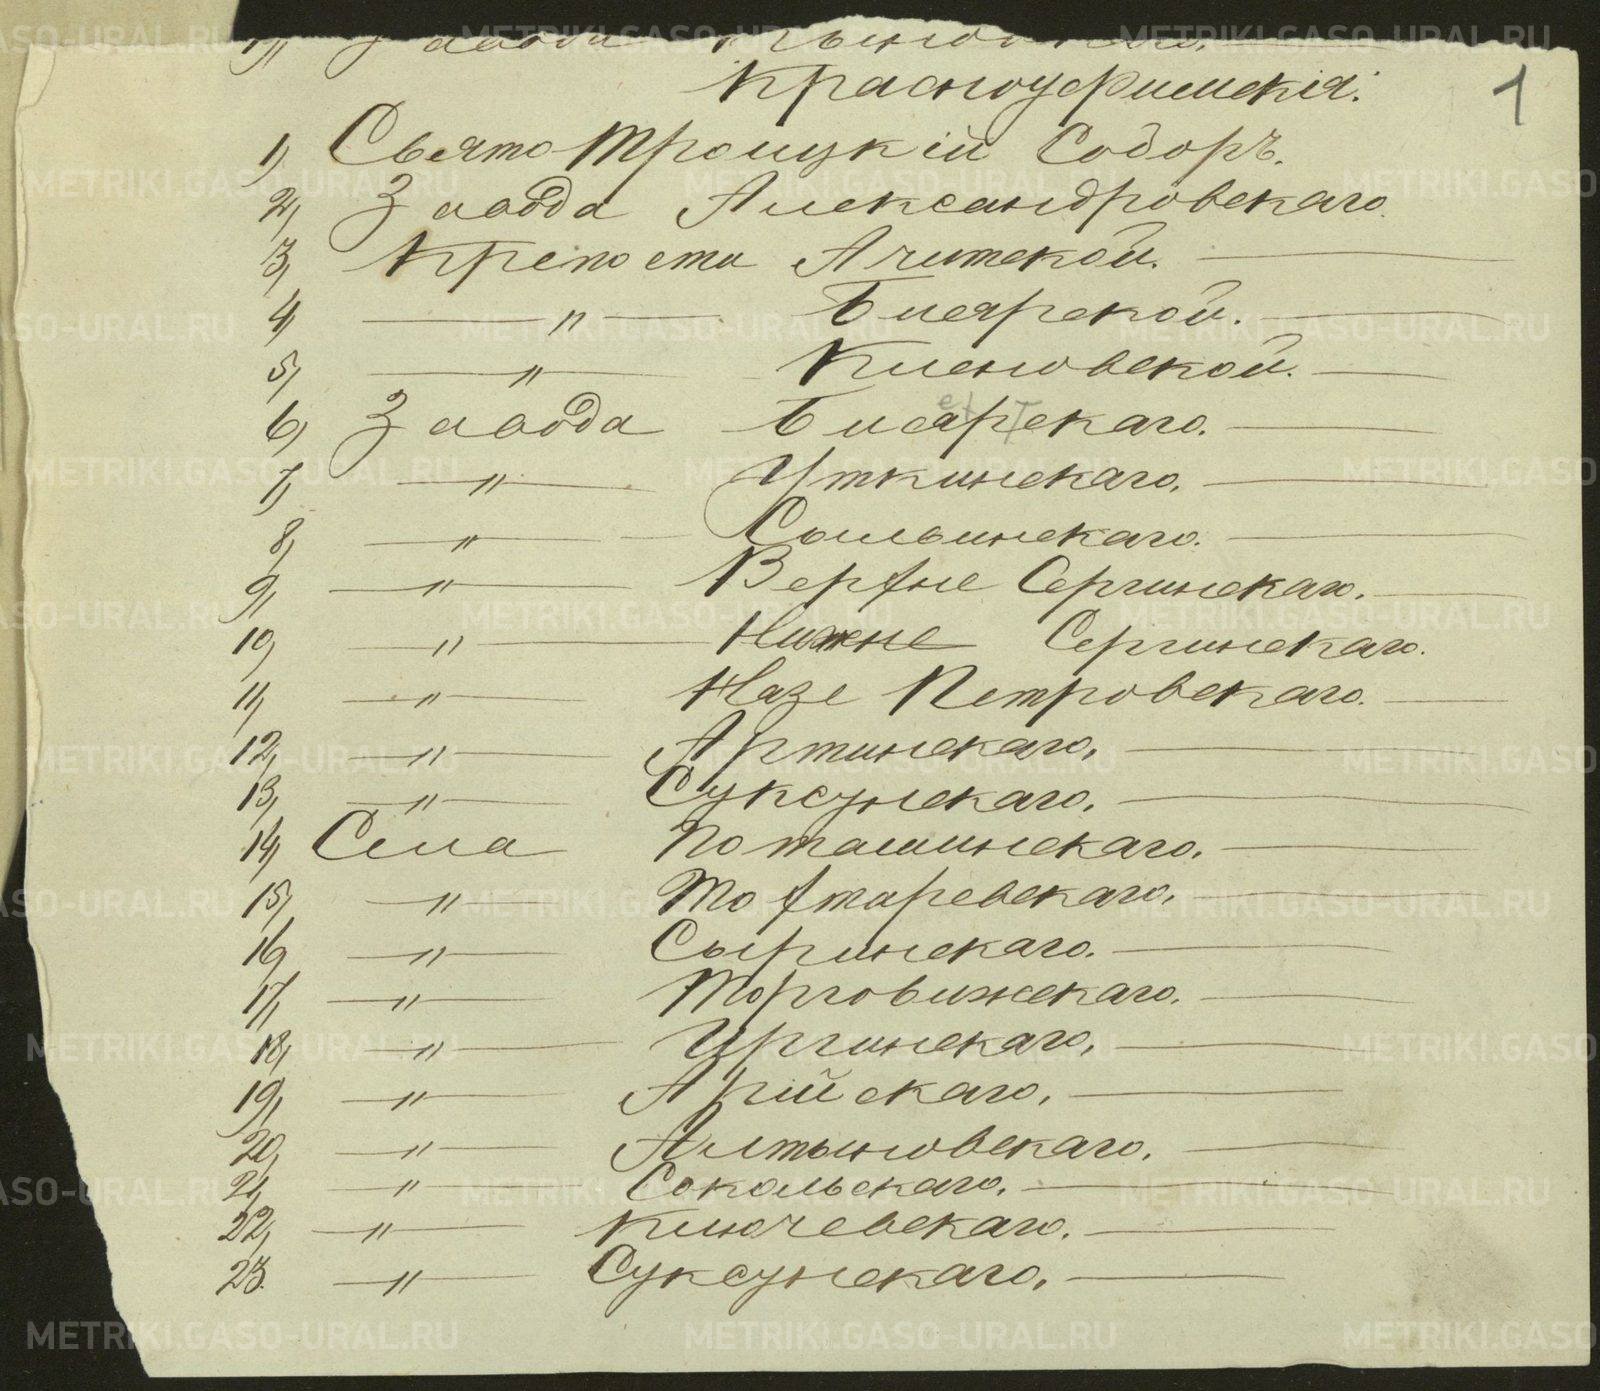 Завода
Красноуфимскія:
1
1, Свято Троицкій Соборъ.
2, Завода Александровскаго
3, Крепости Ачитской.
4, — " — Бисярской.
5, — " — Кленовской.
6, Завода Бисярскаго.
7, — " — Уткинскаго.
8, — " — Сыльвинскаго.
9, — " — Верхне Сергинскаго.
10, — " — Нижне Сергинскаго.
11, — " — Назе Петровскаго.
12, — " — Артинскаго,
13, — " — Суксунскаго.
14, Села Поташинскаго.
15, — " — Тохтаревскаго.
16, — " — Сыринскаго.
17, — " — Торговижскаго.
18, — " — Ургинскаго,
19, — " — Арійскаго,
20, — " — Алтыновскаго,
21, — " — Сокольскаго,
22, — " — Ключевскаго.
23. — " — Суксунскаго,
METRIKI.GASO-URAL.RU